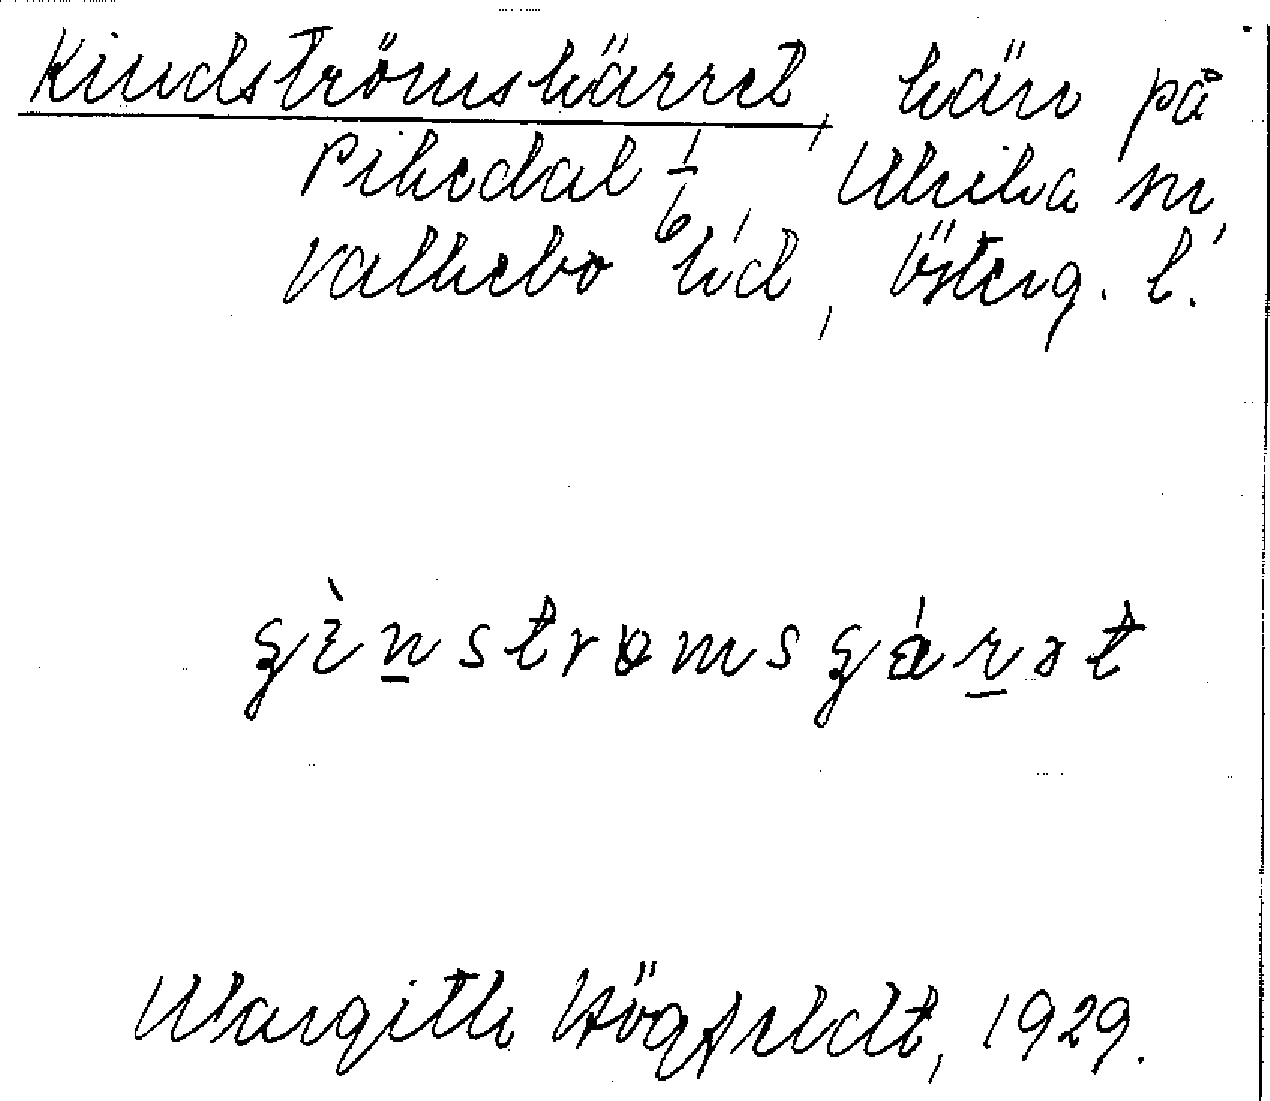 Kindströmskärret, kärr på
Pikedal 1/6, Ulrika sn,
Valkebo hd, Österg. l.
Margith Högfeldt, 1929.